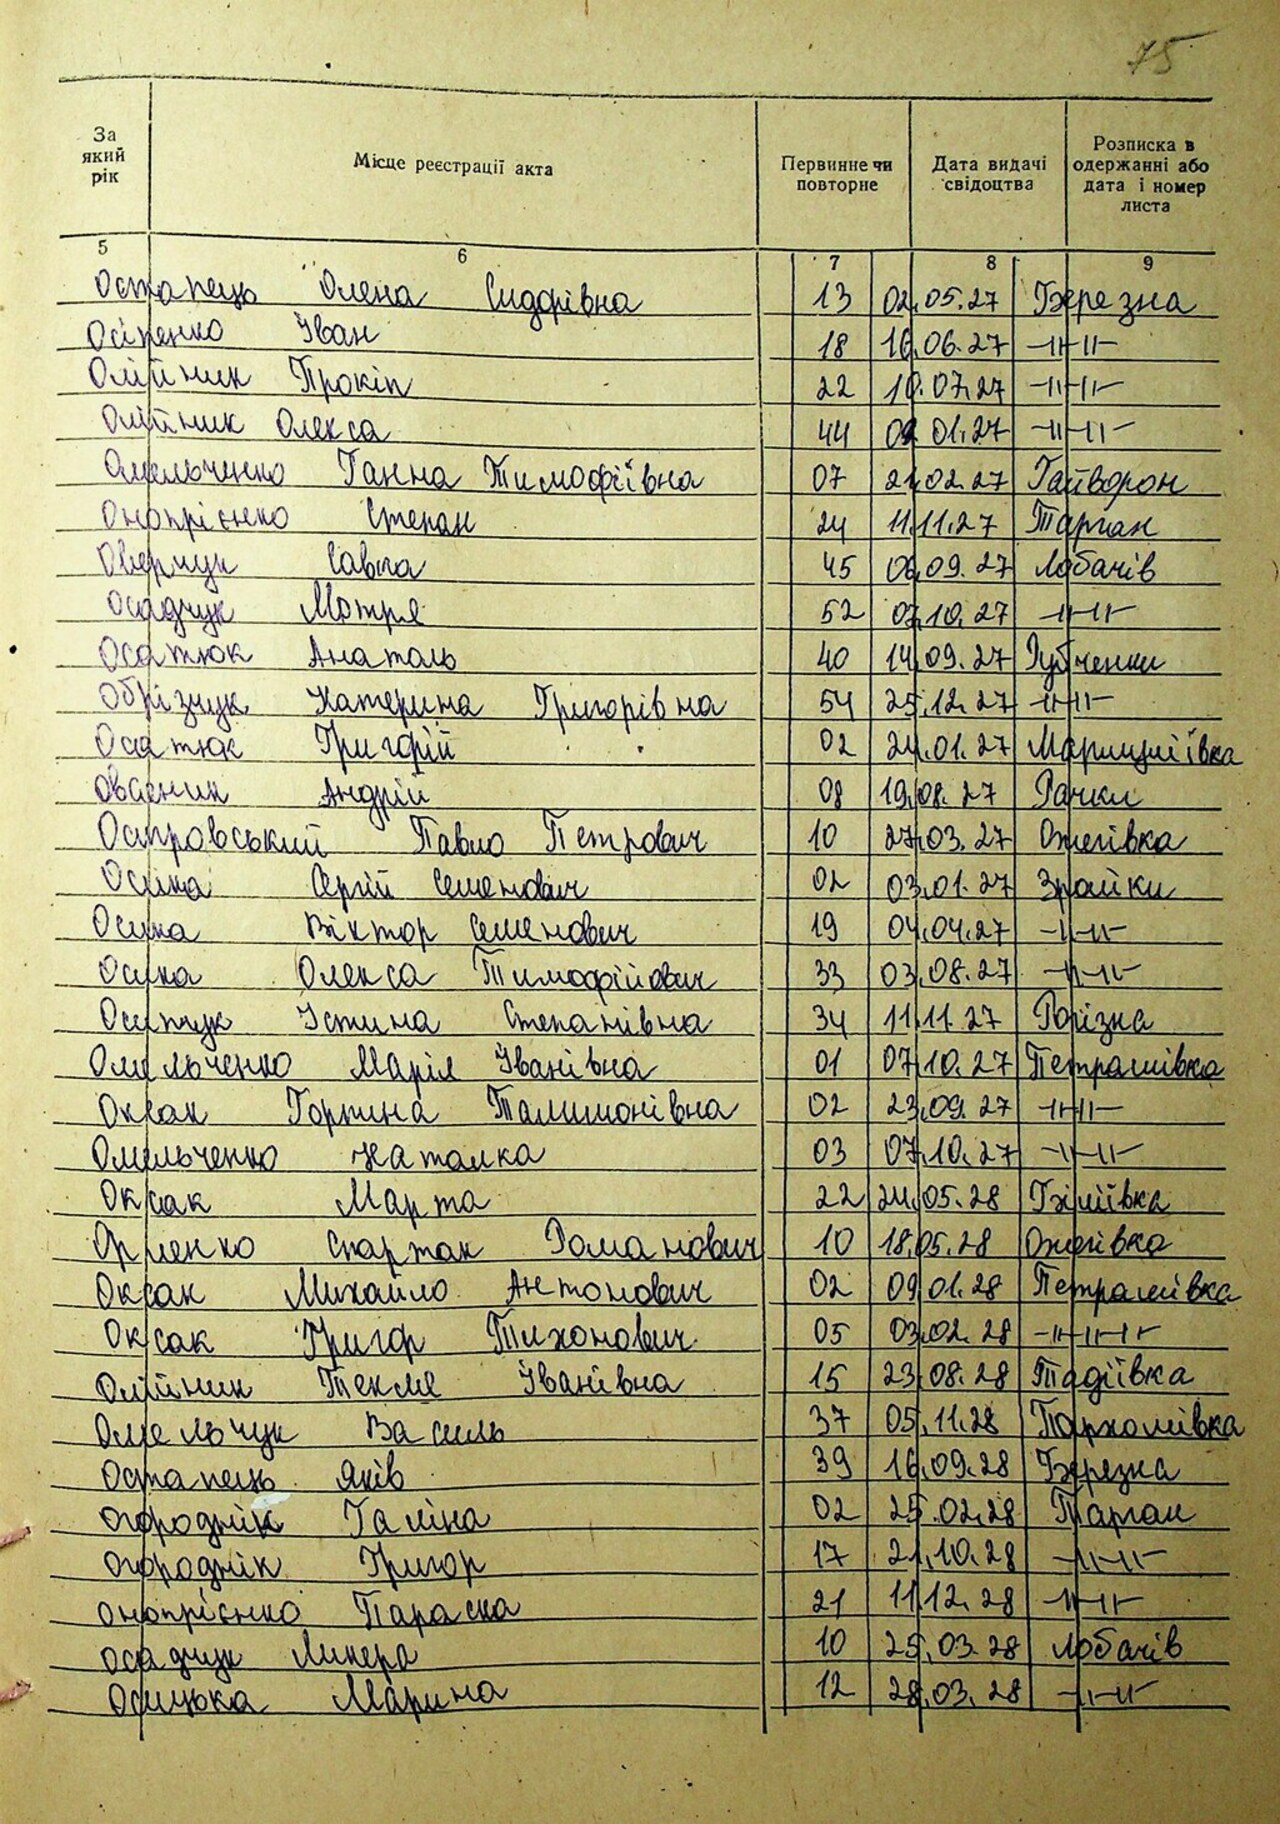 75
За який рік Місце реєстрації акта Первинне чи повторне Дата видачі свідоцтва Розписка в одержанні або дата і номер листа
5 6 7 8 9
Остапець Олена Сидорівна 13 02.05.27 Березна
Осіпенко Іван 18 16.06.27 -//-//-
Олійник Прокіп 22 10.07.27 -//-//-
Олійник Олекса 44 09.01.27 -//-//-
Омельченко Ганна Тимофіївна 07 21.02.27 Гайворон
Онопрієнко Степан 24 11.11.27 Тарган
Оверчук Савка 45 06.09.27 Лобачів
Осадчук Мотря 52 07.10.27 -//-//-
Осатюк Анатоль 40 14.09.27 Рубченки
Обрізчук Катерина Григорівна 54 25.12.27 -//-//-
Осатюк Григорій 02 24.01.27
Овсеник Андрій 08 19.08.27 Рачки
Островський Павло Петрович 10 27.03.27 Ожегівка
Осика Сергій Семенович 02 03.01.27 Зрайки
Осика Віктор Семенович 19 04.04.27 -//-//-
Осика Олекса Тимофійович 33 03.08.27 -//-//-
Осипчук Устина Степанівна 34 11.11.27 Рогізна
Омельченко Марія Іванівна 01 07.10.27 Петрашівка
Оксак Горпина Талимонівна 02 23.09.27 -//-//-
Омельченко Наталка 03 07.10.27 -//-//-
Оксак Марта 22 24.05.28 Біліївка
Орленко Спартак Романович 10 18.05.28 Ожегівка
Оксак Михайло Антонович 02 09.01.28 Петрашівка
Оксак Григор Тихонович 05 03.02.28 -//-//-
Олійник Текля Іванівна 15 23.08.28 Тадіївка
Омельчук Василь 37 05.11.28 Пархомівка
Остапець Яків 39 16.09.28 Березна
Огороднік Галіна 02 25.02.28 Тарган
Огороднік Григор 17 21.10.28 -//-//-
Онопрієнко Параска 21 11.12.28 -//-//-
Осадчук Ликера 10 25.03.28 Лобачів
Осицька Марина 12 28.03.28 -//-//-